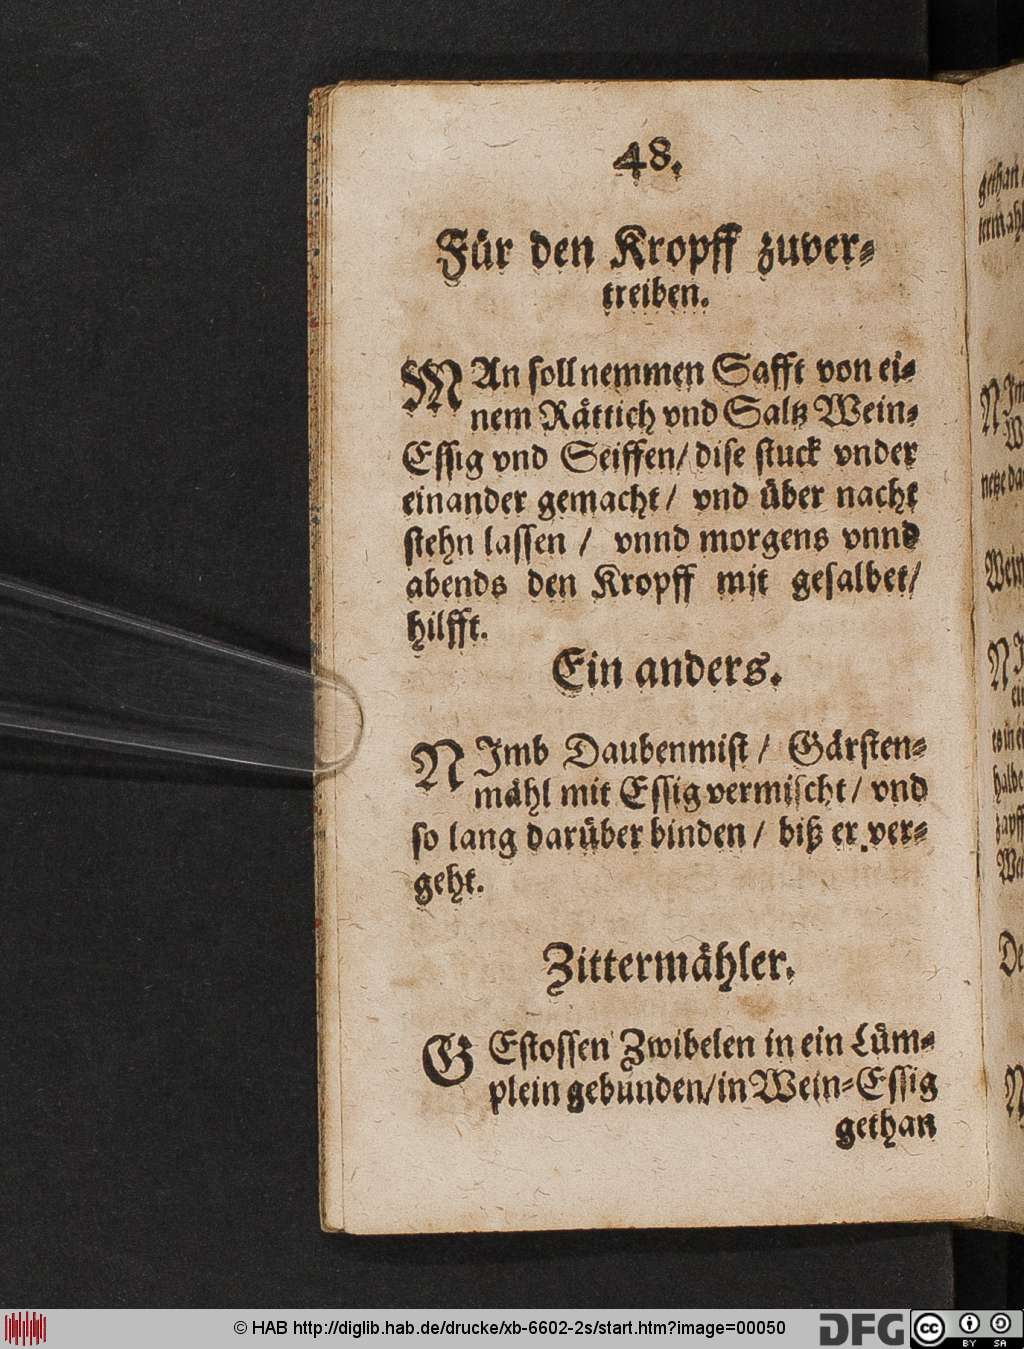 48.
Für den Kropff zuver-
treiben.
MAn soll nemmen Safft von ei-
nem Rättich vnd Saltz Wein-
Essig vnd Seiffen/ dise stuck vnder
einander gemacht/ vnd über nacht
stehn lassen / vnnd morgens vnnd
abends den Kropff mit gesalbet/
hilfft.
Ein anders.
NImb Daubenmist / Gärsten-
mähl mit Essig vermischt / vnd
so lang darüber binden / biß er ver-
geht.
Zittermähler.
GEstossen Zwibelen in ein Lüm-
plein gebunden/in Wein-Essig
gethan
gethan/
netze
Wein
halbe
© HAB http://diglib.hab.de/drucke/xb-6602-2s/start.htm?image=00050
DFG
cc BY SA